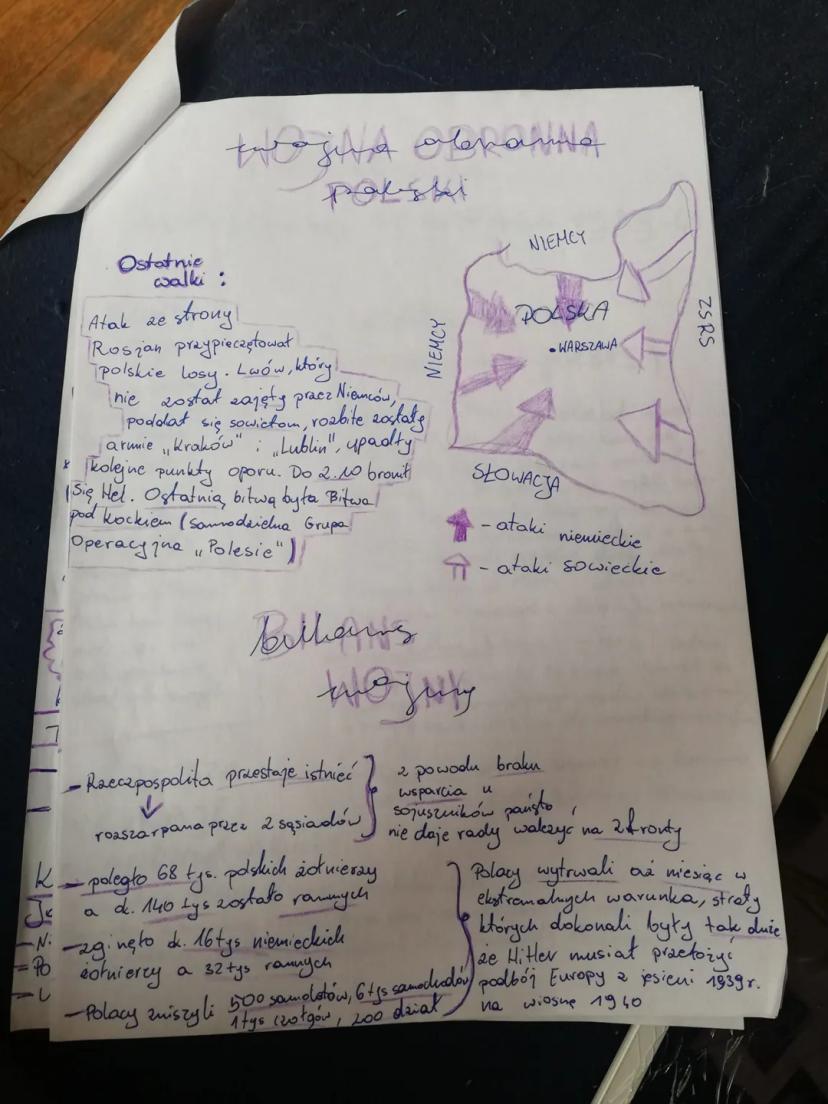 WOJNA OBRONNA
POLSKI
Ostatnie
walki :
Atak ze strony
Rosjan przypieczętował
polskie losy. Lwów, który
nie został zajęty przez Niemców,
poddał się sowietom, rozbite zostały
armie „Kraków” i „Lublin”, upadły
kolejne punkty oporu. Do 2.10 bronił
się Hel. Ostatnią bitwą była Bitwa
pod Kockiem (Samodzielna Grupa
Operacyjna „Polesie”)
NIEMCY
NIEMCY
POLSKA
WARSZAWA
ZSRS
SŁOWACJA
- ataki niemieckie
- ataki sowieckie
BILANS
WOJNY
- Rzeczpospolita przestaje istnieć
rozszarpana przez 2 sąsiadów
z powodu braku
wsparcia u
sojuszników państo
nie daje rady walczyć na 2 fronty
- poległo 68 tys. polskich żołnierzy
a ok. 140 tys zostało rannych
- zginęło ok. 16 tys niemieckich
żołnierzy a 32 tys rannych
- Polacy zniszyli 500 samolotów, 6 tys samochodów
1 tys czołgów, 200 dział
Polacy wytrwali aż miesiąc w
ekstramalnych warunka, straty
których dokonali były tak duże
że Hitler musiał przełożyć
podbój Europy z jesieni 1939 r.
na wiosnę 1940